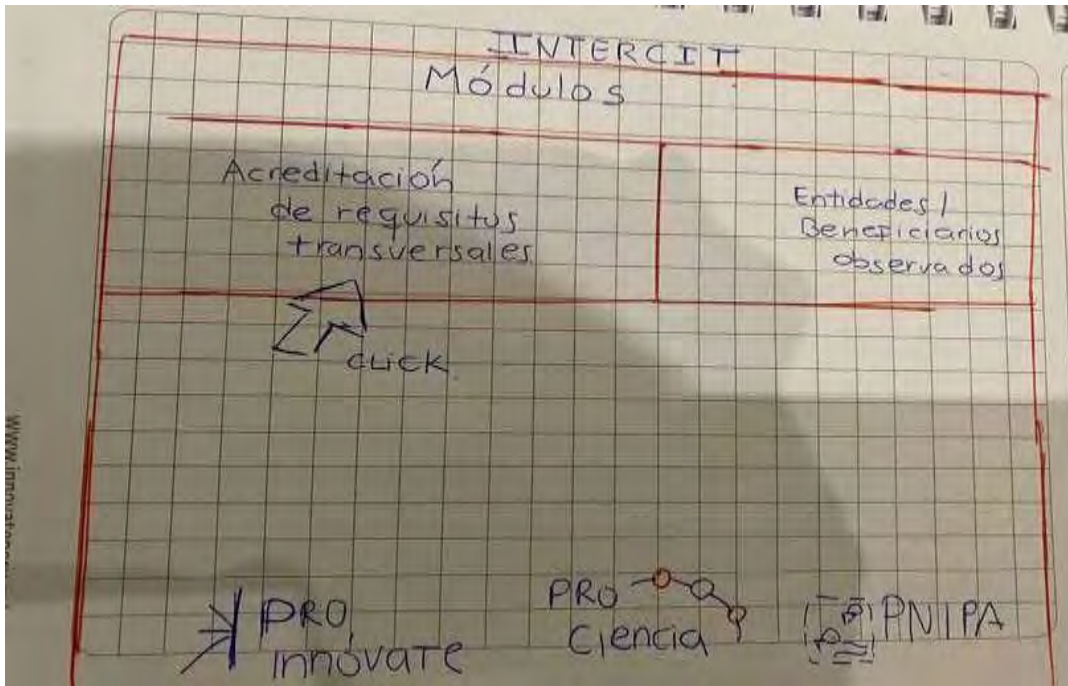 INTERCIT
Módulos
Acreditación
de requisitos
transversales
Entidades/
Beneficiarios
observados
CLICK
PRO
innóvate
PRO
Ciencia
PNIPA